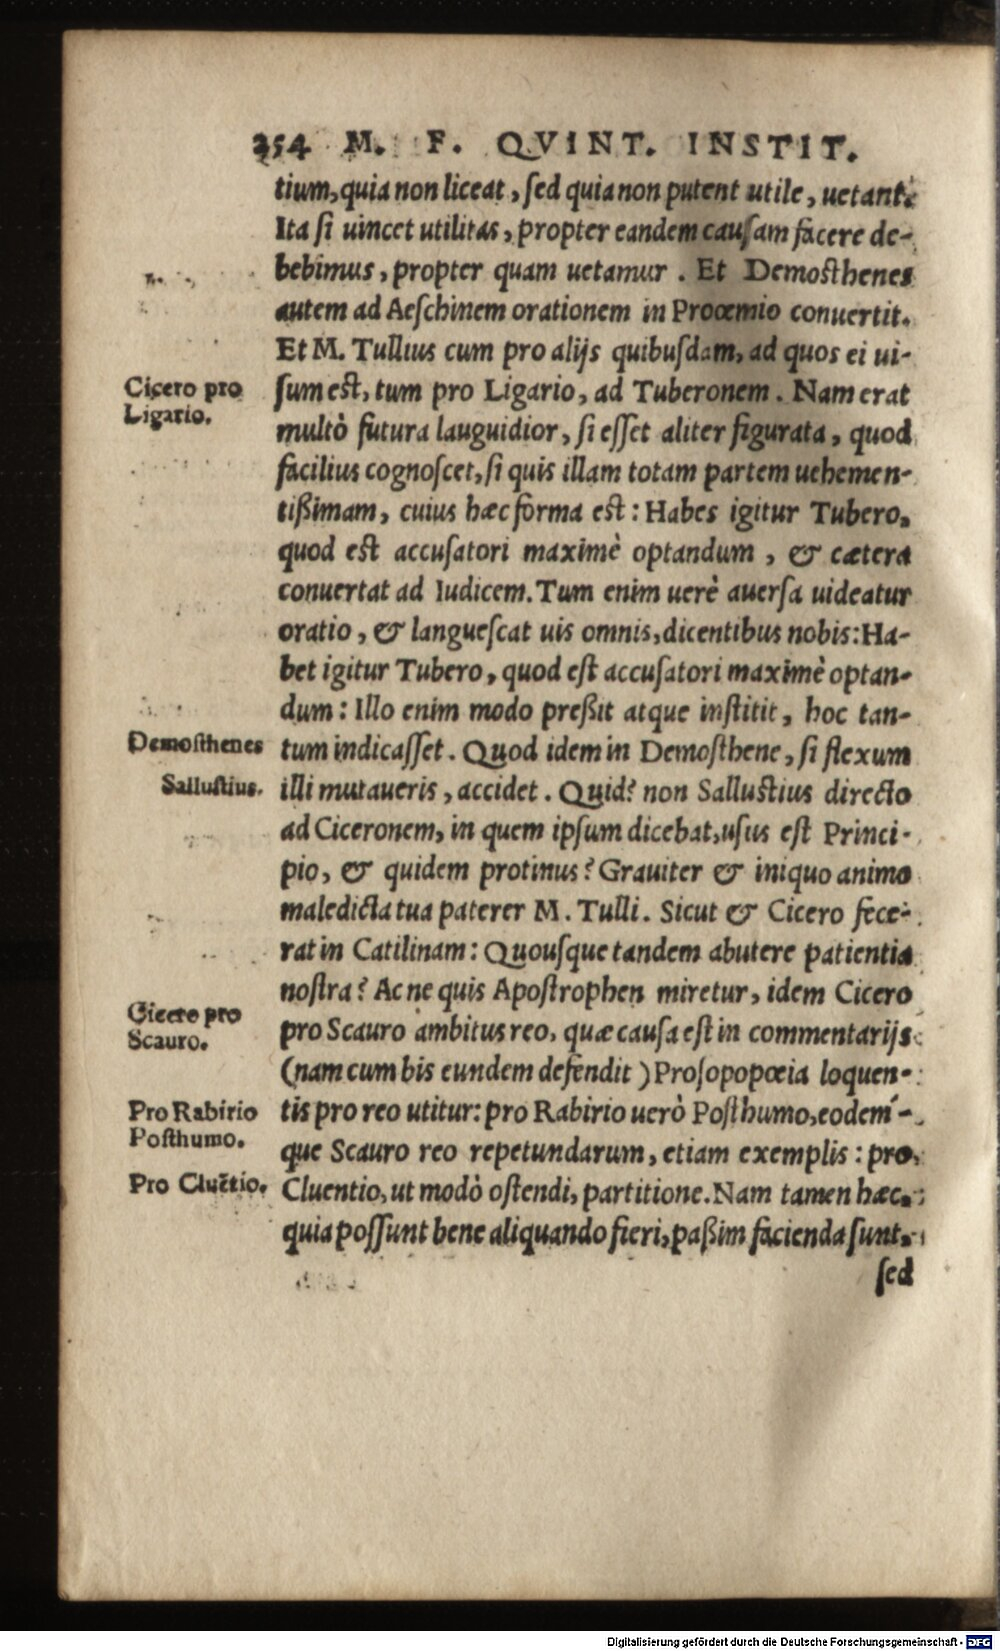 254 M. F. QVINT. INSTIT.
tium, quia non liceat, sed quia non putent utile, uetant.
Ita si uincet utilitas, propter eandem causam facere de-
bebimus, propter quam uetamur. Et Demosthenes
autem ad Aeschinem orationem in Proœmio conuertit.
Et M. Tullius cum pro alijs quibusdam, ad quos ei ui-
Cicero pro
Ligario.
sum est, tum pro Ligario, ad Tuberonem. Nam erat
multò futura lauguidior, si esset aliter figurata, quod
facilius cognoscet, si quis illam totam partem uehemen-
tißimam, cuius hæc forma est: Habes igitur Tubero,
quod est accusatori maximè optandum, & cætera
conuertat ad Iudicem. Tum enim uerè auersa uideatur
oratio, & languescat uis omnis, dicentibus nobis: Ha-
bet igitur Tubero, quod est accusatori maximè optan-
dum: Illo enim modo preßit atque institit, hoc tan-
Demosthenes
tum indicasset. Quod idem in Demosthene, si flexum
Sallustius.
illi mutaueris, accidet. Quid? non Sallustius directo
ad Ciceronem, in quem ipsum dicebat, usus est Princi-
pio, & quidem protinus? Grauiter & iniquo animo
maledicta tua paterer M. Tulli. Sicut & Cicero fece-
rat in Catilinam: Quousque tandem abutere patientia
nostra? Ac ne quis Apostrophen miretur, idem Cicero
Cicero pro
Scauro.
pro Scauro ambitus reo, quæ causa est in commentarijs
(nam cum bis eundem defendit) Prosopopœia loquen-
Pro Rabirio
Posthumo.
tis pro reo utitur: pro Rabirio uerò Posthumo, eodem-
que Scauro reo repetundarum, etiam exemplis: pro
Pro Cluẽtio.
Cluentio, ut modò ostendi, partitione. Nam tamen hæc,
quia possunt bene aliquando fieri, paßim facienda sunt,
sed
Digitalisierung gefördert durch die Deutsche Forschungsgemeinschaft - DFG